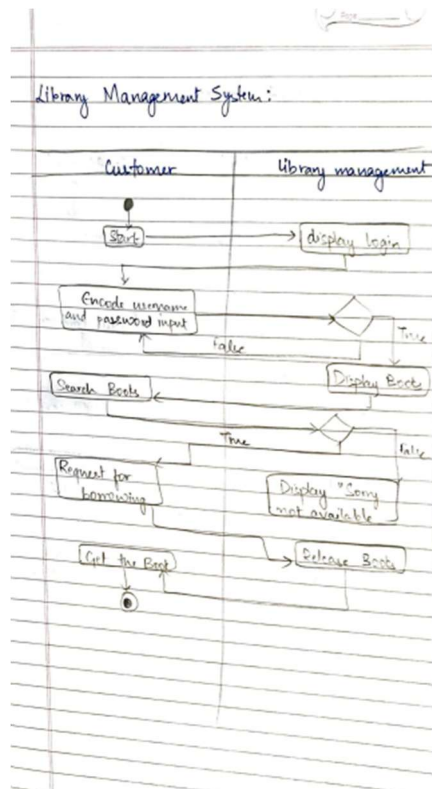 Page
Library Management System:
Customer
Library management
Start
display login
Encode username
and password input
True
False
Search Books
Display Books
True
False
Request for
borrowing
Display "Sorry
not available
Get the Book
Release Books